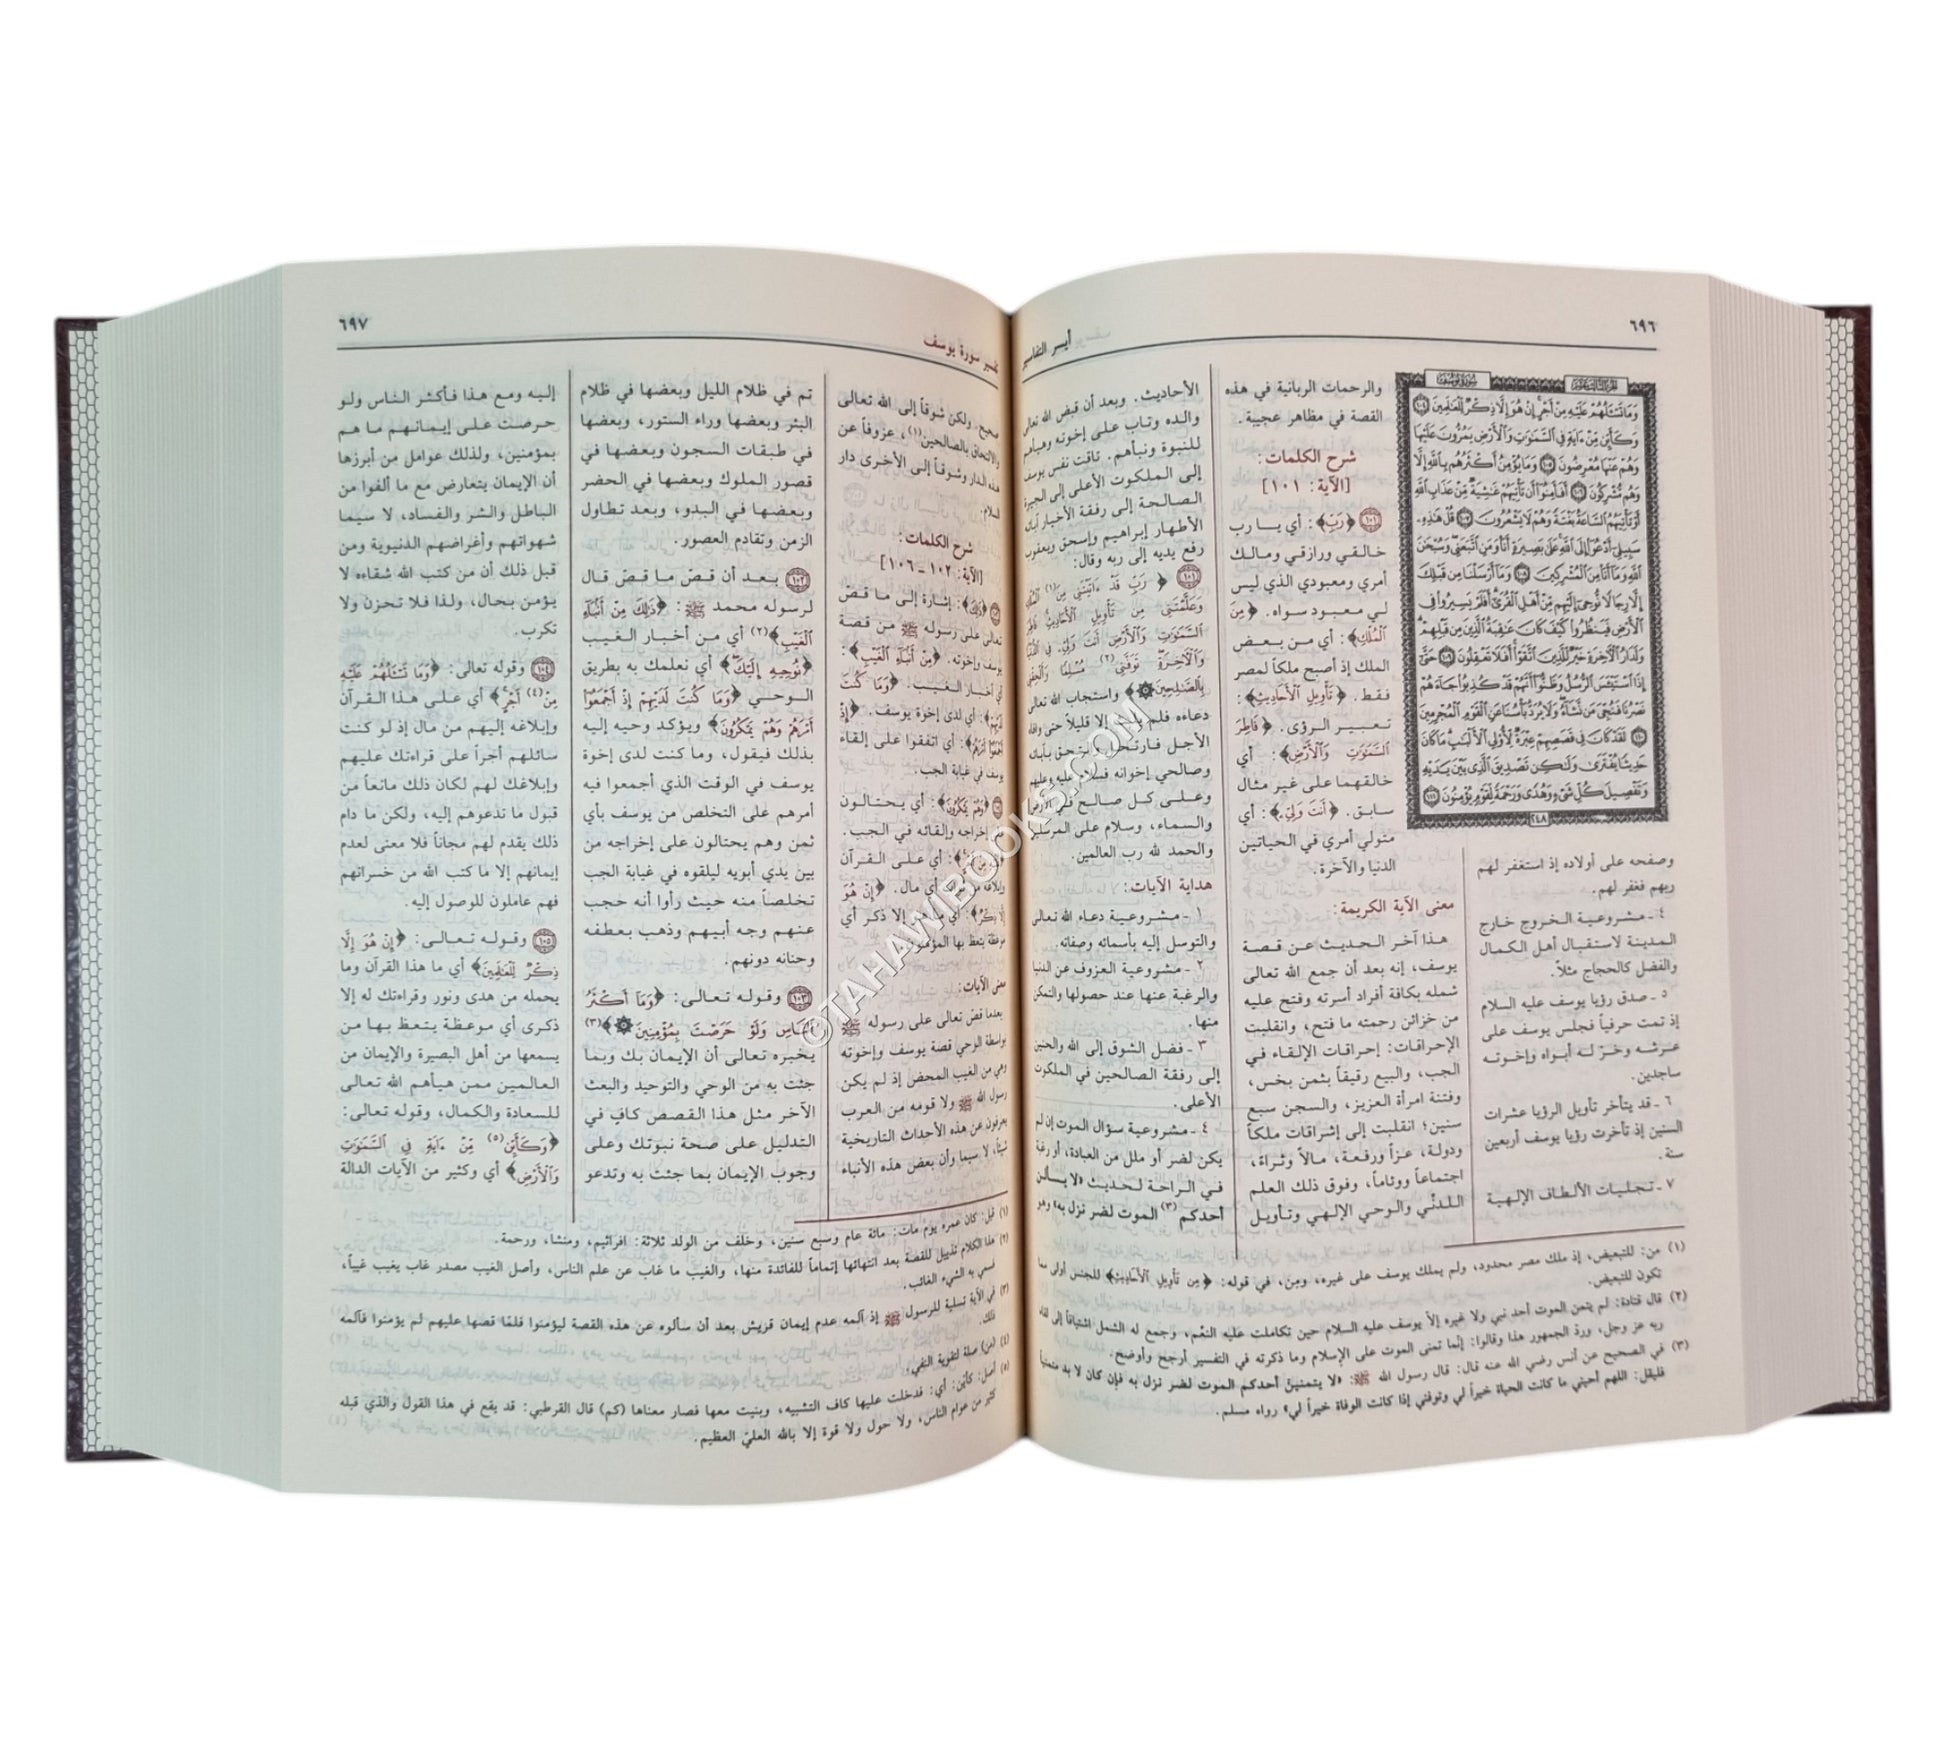 ٦٩٦
أيسر التفاسير
وَمَا تَسْـَٔلُهُمْ عَلَيْهِ مِنْ أَجْرٍ إِنْ هُوَ إِلَّا ذِكْرٌ لِّلْعَٰلَمِينَ ١٠٤
وَكَأَيِّن مِّنْ ءَايَةٍ فِي ٱلسَّمَٰوَٰتِ وَٱلْأَرْضِ يَمُرُّونَ عَلَيْهَا
وَهُمْ عَنْهَا مُعْرِضُونَ ١٠٥ وَمَا يُؤْمِنُ أَكْثَرُهُم بِٱللَّهِ إِلَّا
وَهُم مُّشْرِكُونَ ١٠٦ أَفَأَمِنُوٓا۟ أَن تَأْتِيَهُمْ غَٰشِيَةٌ مِّنْ عَذَابِ ٱللَّهِ
أَوْ تَأْتِيَهُمُ ٱلسَّاعَةُ بَغْتَةً وَهُمْ لَا يَشْعُرُونَ ١٠٧ قُلْ هَٰذِهِۦ
سَبِيلِىٓ أَدْعُوٓا۟ إِلَى ٱللَّهِ عَلَىٰ بَصِيرَةٍ أَنَا۠ وَمَنِ ٱتَّبَعَنِى وَسُبْحَٰنَ
ٱللَّهِ وَمَآ أَنَا۠ مِنَ ٱلْمُشْرِكِينَ ١٠٨ وَمَآ أَرْسَلْنَا مِن قَبْلِكَ
إِلَّا رِجَالًا نُّوحِىٓ إِلَيْهِم مِّنْ أَهْلِ ٱلْقُرَىٰٓ أَفَلَمْ يَسِيرُوا۟ فِى
ٱلْأَرْضِ فَيَنظُرُوا۟ كَيْفَ كَانَ عَٰقِبَةُ ٱلَّذِينَ مِن قَبْلِهِمْ
وَلَدَارُ ٱلْءَاخِرَةِ خَيْرٌ لِّلَّذِينَ ٱتَّقَوْا۟ أَفَلَا تَعْقِلُونَ ١٠٩ حَتَّىٰٓ
إِذَا ٱسْتَيْـَٔسَ ٱلرُّسُلُ وَظَنُّوٓا۟ أَنَّهُمْ قَدْ كُذِبُوا۟ جَآءَهُمْ
نَصْرُنَا فَنُجِّىَ مَن نَّشَآءُ وَلَا يُرَدُّ بَأْسُنَا عَنِ ٱلْقَوْمِ ٱلْمُجْرِمِينَ
١١٠ لَقَدْ كَانَ فِى قَصَصِهِمْ عِبْرَةٌ لِّأُو۟لِى ٱلْأَلْبَٰبِ مَا كَانَ
حَدِيثًا يُفْتَرَىٰ وَلَٰكِن تَصْدِيقَ ٱلَّذِى بَيْنَ يَدَيْهِ
وَتَفْصِيلَ كُلِّ شَىْءٍ وَهُدًى وَرَحْمَةً لِّقَوْمٍ يُؤْمِنُونَ ١١١
٢٤٨
وصفحه على أولاده إذ استغفر لهم
ربهم فغفر لهم.
٤ - مشروعية الخروج خارج
المدينة لاستقبال أهل الكمال
والفضل كالحجاج مثلاً.
٥ - صدق رؤيا يوسف عليه السلام
إذ تمت حرفياً فجلس يوسف على
عرشه وخرّ له أبواه وإخوته
ساجدين.
٦ - قد يتأخر تأويل الرؤيا عشرات
السنين إذ تأخرت رؤيا يوسف أربعين
سنة.
٧ - تجليات الألطاف الإلهية
والرحمات الربانية في هذه
القصة في مظاهر عجيبة.
شرح الكلمات:
[الآية: ١٠١]
١٠١ ﴿رَبِّ﴾: أي يا رب
خالقي ورازقي ومالك
أمري ومعبودي الذي ليس
لي معبود سواه. ﴿مِنَ
ٱلْمُلْكِ﴾: أي من بعض
الملك إذ أصبح ملكاً لمصر
فقط. ﴿تَأْوِيلِ ٱلْأَحَادِيثِ﴾:
تعبير الرؤى. ﴿فَاطِرَ
ٱلسَّمَٰوَٰتِ وَٱلْأَرْضِ﴾: أي
خالقهما على غير مثال
سابق. ﴿أَنتَ وَلِىِّۦ﴾: أي
متولي أمري في الحياتين
الدنيا والآخرة.
معنى الآية الكريمة:
هذا آخر الحديث عن قصة
يوسف، إنه بعد أن جمع الله تعالى
شمله بكافة أفراد أسرته وفتح عليه
من خزائن رحمته ما فتح، وانقلبت
الإحراقات: إحراقات الإلقاء في
الجب، والبيع رقيقاً بثمن بخس،
وفتنة امرأة العزيز، والسجن سبع
سنين؛ انقلبت إلى إشراقات ملكاً
ودولة، عزاً ورفعة، مالاً وثراءً،
اجتماعاً ووئاماً، وفوق ذلك العلم
اللدنّي والوحي الإلهي وتأويل
الأحاديث. وبعد أن قبض الله تعالى
والده وتاب على إخوته وهيأهم
للنبوة ونبأهم. تاقت نفس يوسف
إلى الملكوت الأعلى إلى الجيرة
الصالحة إلى رفقة الأخيار آبائه
الأطهار إبراهيم وإسحق ويعقوب
رفع يديه إلى ربه وقال:
١٠١ ﴿رَبِّ قَدْ ءَاتَيْتَنِى مِنَ(١) ٱلْمُلْكِ
وَعَلَّمْتَنِى مِن تَأْوِيلِ ٱلْأَحَادِيثِ فَاطِرَ
ٱلسَّمَٰوَٰتِ وَٱلْأَرْضِ أَنتَ وَلِىِّۦ فِى ٱلدُّنْيَا
وَٱلْءَاخِرَةِ تَوَفَّنِى(٢) مُسْلِمًا وَأَلْحِقْنِى
بِٱلصَّٰلِحِينَ﴾ واستجاب الله تعالى
دعاءه فلم يلبث إلا قليلاً حتى وافاه
الأجل فارتحل والتحق بآبائه
وصالحي إخوانه فسلام عليه وعليهم
وعلى كل صالح في الأرض
والسماء، وسلام على المرسلين
والحمد لله رب العالمين.
هداية الآيات:
١ - مشروعية دعاء الله تعالى
والتوسل إليه بأسمائه وصفاته.
٢ - مشروعية العزوف عن الدنيا
والرغبة عنها عند حصولها والتمكن
منها.
٣ - فضل الشوق إلى الله والحنين
إلى رفقة الصالحين في الملكوت
الأعلى.
٤ - مشروعية سؤال الموت إن لم
يكن لضر أو ملل من العبادة، أو رغبة
في الراحة لحديث «لا يسألن
أحدكم(٣) الموت لضر نزل به» وهو
(١) من: للتبعيض، إذ ملك مصر محدود، ولم يملك يوسف على غيره، ومِن، في قوله: ﴿مِن تَأْوِيلِ ٱلْأَحَادِيثِ﴾ للجنس أولى مما
تكون للتبعيض.
(٢) قال قتادة: لم يتمن الموت أحد نبي ولا غيره إلاّ يوسف عليه السلام حين تكاملت عليه النعم، وجمع له الشمل اشتياقاً إلى لقاء
ربه عز وجل، وردّ الجمهور هذا وقالوا: إنّما تمنى الموت على الإسلام وما ذكرته في التفسير أرجح وأوضح.
(٣) في الصحيح عن أنس رضي الله عنه قال: قال رسول الله ﷺ: «لا يتمنينّ أحدكم الموت لضر نزل به فإن كان لا بد متمنياً
فليقل: اللهم أحيني ما كانت الحياة خيراً لي وتوفني إذا كانت الوفاة خيراً لي» رواه مسلم.
تفسير سورة يوسف
٦٩٧
صحيح. ولكن شوقاً إلى الله تعالى
والالتحاق بالصالحين(١)، عزوفاً عن
هذه الدار وشوقاً إلى الأخرى دار
السلام.
شرح الكلمات:
[الآية: ١٠٢ - ١٠٦]
﴿ذَٰلِكَ﴾: إشارة إلى ما قصّ
تعالى على رسوله ﷺ من قصة
يوسف وإخوته. ﴿مِنْ أَنۢبَآءِ ٱلْغَيْبِ﴾:
أي أخبار الغيب. ﴿وَمَا كُنتَ
لَدَيْهِمْ﴾: أي لدى إخوة يوسف. ﴿إِذْ
أَجْمَعُوٓا۟ أَمْرَهُمْ﴾: أي اتفقوا على إلقاء
يوسف في غيابة الجب.
﴿وَهُمْ يَمْكُرُونَ﴾: أي يحتالون
على إخراجه وإلقائه في الجب.
أي على القرآن
وإبلاغه أي مال. ﴿إِنْ هُوَ
إِلَّا ذِكْرٌ﴾: أي ما هو إلا ذكر أي
موعظة يتعظ بها المؤمنون.
معنى الآيات:
بعدما قصّ تعالى على رسوله ﷺ
بواسطة الوحي قصة يوسف وإخوته
وهي من الغيب المحض إذ لم يكن
رسول الله ﷺ ولا قومه من العرب
يعرفون عن هذه الأحداث التاريخية
شيئاً، لا سيما وأن بعض هذه الأنباء
تم في ظلام الليل وبعضها في ظلام
البئر وبعضها وراء الستور، وبعضها
في طبقات السجون وبعضها في
قصور الملوك وبعضها في الحضر
وبعضها في البدو، وبعد تطاول
الزمن وتقادم العصور.
١٠٢ بعد أن قصّ ما قصّ قال
لرسوله محمد ﷺ: ﴿ذَٰلِكَ مِنْ أَنۢبَآءِ
ٱلْغَيْبِ﴾(٢) أي من أخبار الغيب
﴿نُوحِيهِ إِلَيْكَ﴾ أي نعلمك به بطريق
الوحي ﴿وَمَا كُنتَ لَدَيْهِمْ إِذْ أَجْمَعُوٓا۟
أَمْرَهُمْ وَهُمْ يَمْكُرُونَ﴾ ويؤكد وحيه إليه
بذلك فيقول، وما كنت لدى إخوة
يوسف في الوقت الذي أجمعوا فيه
أمرهم على التخلص من يوسف بأي
ثمن وهم يحتالون على إخراجه من
بين يدي أبويه ليلقوه في غيابة الجب
تخلصاً منه حيث رأوا أنه حجب
عنهم وجه أبيهم وذهب بعطفه
وحنانه دونهم.
١٠٣ وقوله تعالى: ﴿وَمَآ أَكْثَرُ
ٱلنَّاسِ وَلَوْ حَرَصْتَ بِمُؤْمِنِينَ﴾(٣)
يخبره تعالى أن الإيمان بك وبما
جئت به من الوحي والتوحيد والبعث
الآخر مثل هذا القصص كافٍ في
التدليل على صحة نبوتك وعلى
وجوب الإيمان بما جئت به وتدعو
إليه ومع هذا فأكثر الناس ولو
حرصت على إيمانهم ما هم
بمؤمنين، ولذلك عوامل من أبرزها
أن الإيمان يتعارض مع ما ألفوا من
الباطل والشر والفساد، لا سيما
شهواتهم وأغراضهم الدنيوية ومن
قبل ذلك أن من كتب الله شقاءه لا
يؤمن بحال، ولذا فلا تحزن ولا
تكرب.
١٠٤ وقوله تعالى: ﴿وَمَا تَسْـَٔلُهُمْ عَلَيْهِ
مِنْ(٤) أَجْرٍ﴾ أي على هذا القرآن
وإبلاغه إليهم من مال إذ لو كنت
سائلهم أجراً على قراءتك عليهم
وإبلاغك لهم لكان ذلك مانعاً من
قبول ما تدعوهم إليه، ولكن ما دام
ذلك يقدم لهم مجاناً فلا معنى لعدم
إيمانهم إلا ما كتب الله من خسرانهم
فهم عاملون للوصول إليه.
١٠٥ وقوله تعالى: ﴿إِنْ هُوَ إِلَّا
ذِكْرٌ لِّلْعَٰلَمِينَ﴾ أي ما هذا القرآن وما
يحمله من هدى ونور وقراءتك له إلا
ذكرى أي موعظة يتعظ بها من
يسمعها من أهل البصيرة والإيمان من
العالمين ممن هيأهم الله تعالى
للسعادة والكمال، وقوله تعالى:
﴿وَكَأَيِّن(٥) مِّنْ ءَايَةٍ فِى ٱلسَّمَٰوَٰتِ
وَٱلْأَرْضِ﴾ أي وكثير من الآيات الدالة
(١) قيل: كان عمره يوم مات: مائة عام وسبع سنين، وخلف من الولد ثلاثة: افرائيم، ومنشا، ورحمة.
(٢) هذا الكلام تذييل للقصة بعد انتهائها إتماماً للفائدة منها، والغيب ما غاب عن علم الناس، وأصل الغيب مصدر غاب يغيب غيباً،
فسمي به الشيء الغائب.
(٣) في الآية تسلية للرسول ﷺ إذ آلمه عدم إيمان قريش بعد أن سألوه عن هذه القصة ليؤمنوا فلمّا قصها عليهم لم يؤمنوا فآلمه
ذلك.
(٤) (من) صلة لتقوية النفي.
(٥) أصل: كأيّن: أي: فدخلت عليها كاف التشبيه، وبنيت معها فصار معناها (كم) قال القرطبي: قد يقع في هذا القول والذي قبله
كثير من عوام الناس، ولا حول ولا قوة إلا بالله العليّ العظيم.
©TAHAWIBOOKS.COM